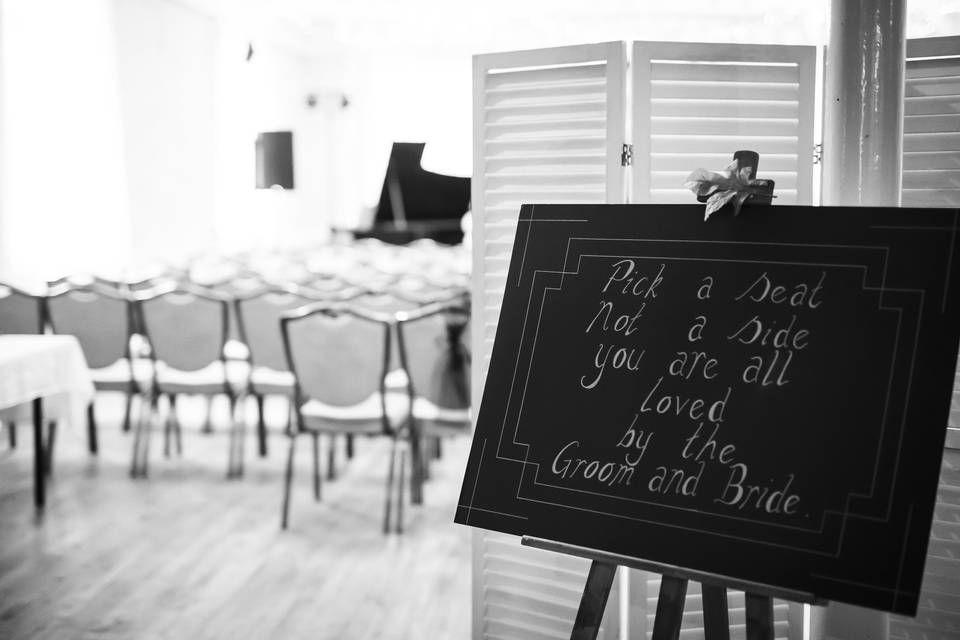 Pick a seat
Not a side
you are all
loved
by the
Groom and Bride.